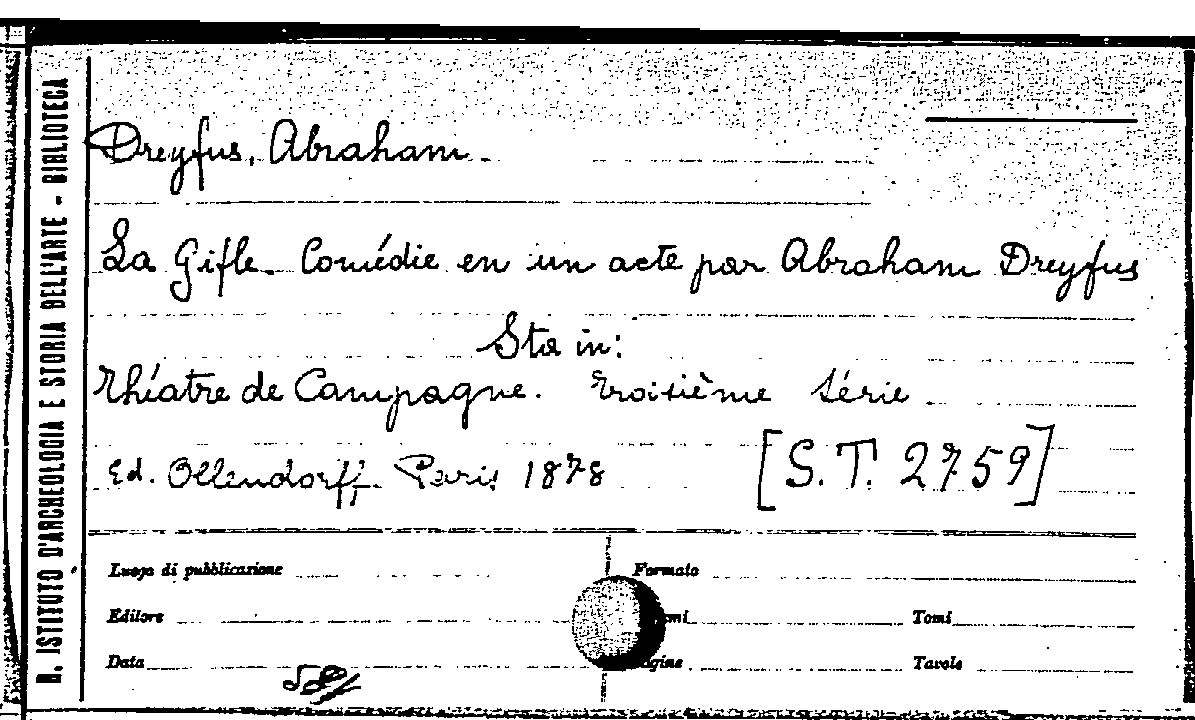 R. ISTITUTO D'ARCHEOLOGIA E STORIA DELL'ARTE - BIBLIOTECA
Dreyfus, Abraham.
La Gifle. Comédie en un acte par Abraham Dreyfus
Sta in:
Théatre de Campagne. Troisième série
Ed. Ollendorff. Paris 1878 [S.T. 2759]
Luogo di pubblicazione Formato
Editore Tomi
Data Tavole